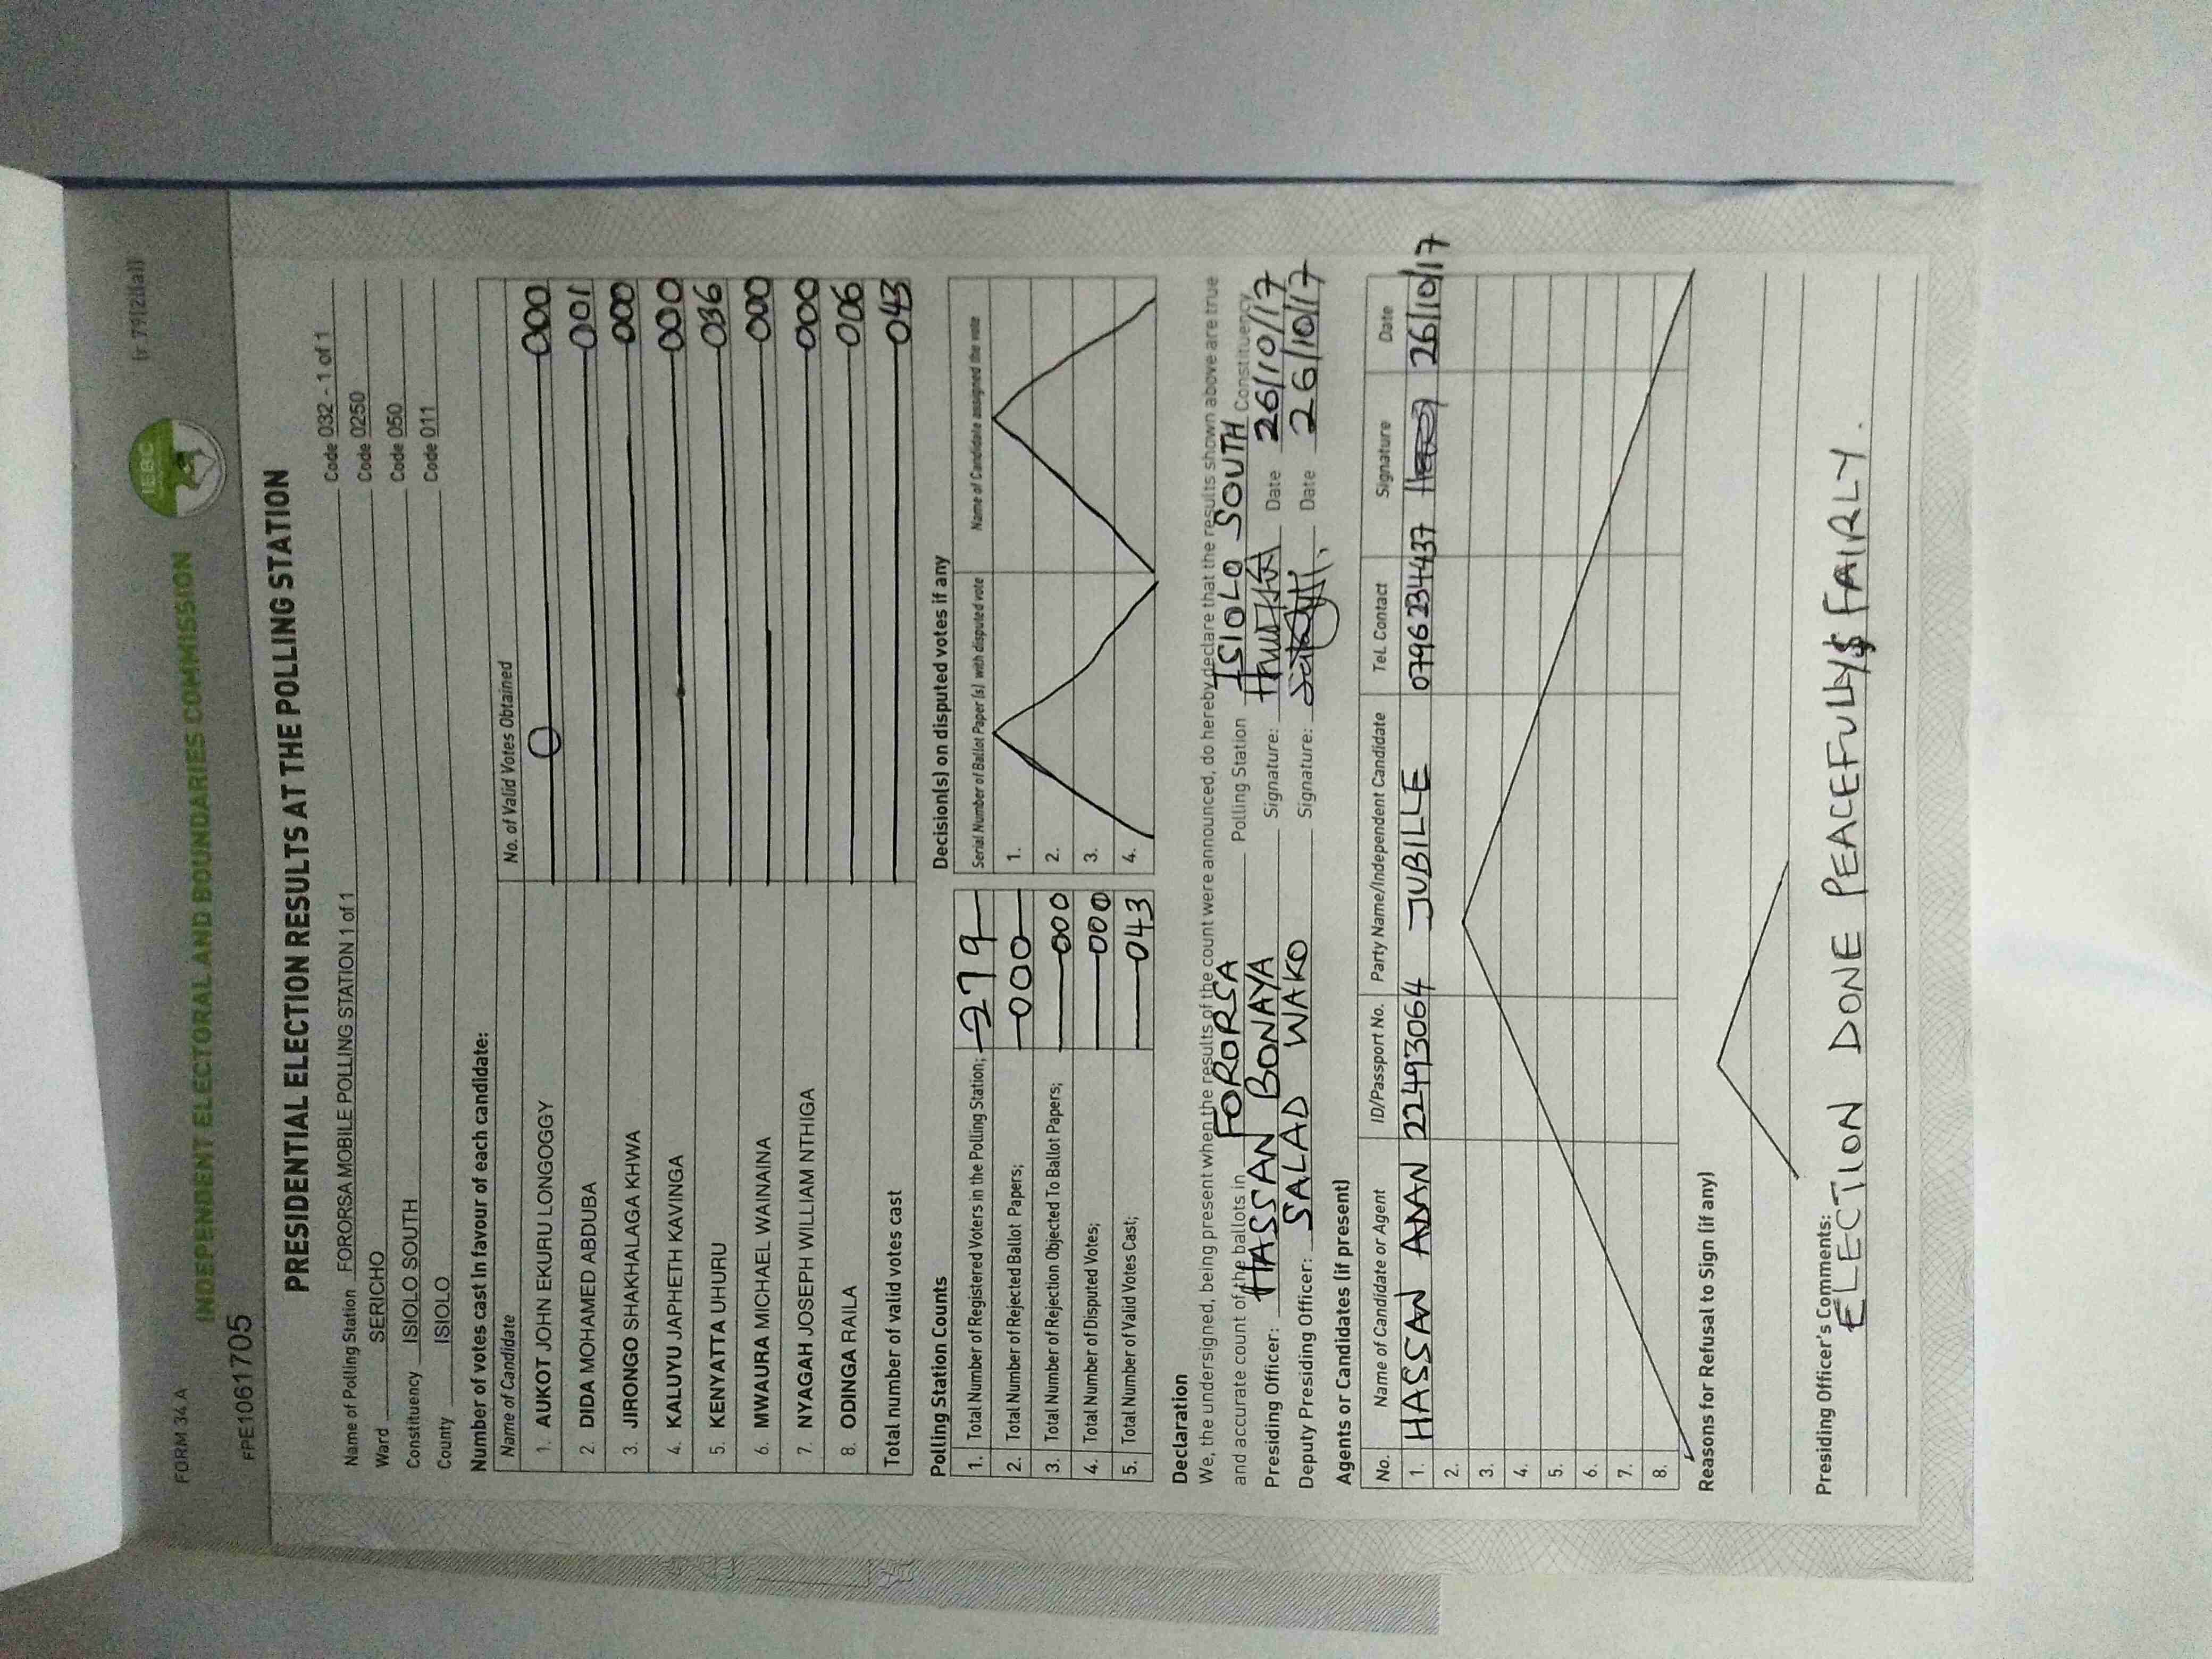 FORM 34 A
(r 79(2)(a))
INDEPENDENT ELECTORAL AND BOUNDARIES COMMISSION
IEBC
FPE1061705
PRESIDENTIAL ELECTION RESULTS AT THE POLLING STATION
Name of Polling Station FORORSA MOBILE POLLING STATION 1 of 1 Code 032 - 1 of 1
Ward SERICHO Code 0250
Constituency ISIOLO SOUTH Code 050
County ISIOLO Code 011
Number of votes cast in favour of each candidate:
Name of Candidate No. of Valid Votes Obtained
1. AUKOT JOHN EKURU LONGOGGY 000
2. DIDA MOHAMED ABDUBA 001
3. JIRONGO SHAKHALAGA KHWA 000
4. KALUYU JAPHETH KAVINGA 000
5. KENYATTA UHURU 036
6. MWAURA MICHAEL WAINAINA 000
7. NYAGAH JOSEPH WILLIAM NTHIGA 000
8. ODINGA RAILA 006
Total number of valid votes cast 043
Polling Station Counts
1. Total Number of Registered Voters in the Polling Station; 279
2. Total Number of Rejected Ballot Papers; 000
3. Total Number of Rejection Objected To Ballot Papers; 000
4. Total Number of Disputed Votes; 000
5. Total Number of Valid Votes Cast; 043
Decision(s) on disputed votes if any
Serial Number of Ballot Paper (s) with disputed vote Name of Candidate assigned the vote
1.
2.
3.
4.
Declaration
We, the undersigned, being present when the results of the count were announced, do hereby declare that the results shown above are true
and accurate count of the ballots in FORORSA Polling Station ISIOLO SOUTH Constituency
Presiding Officer: HASSAN BONAYA Signature: Date 26/10/17
Deputy Presiding Officer: SALAD WAKO Signature: Date 26/10/17
Agents or Candidates (if present)
No. Name of Candidate or Agent ID/Passport No. Party Name/Independent Candidate Tel. Contact Signature Date
1. HASSAN ADAN 22493064 JUBILLE 0796234437 26/10/17
2.
3.
4.
5.
6.
7.
8.
Reasons for Refusal to Sign (if any)
Presiding Officer's Comments:
ELECTION DONE PEACEFULLY $ FAIRLY.